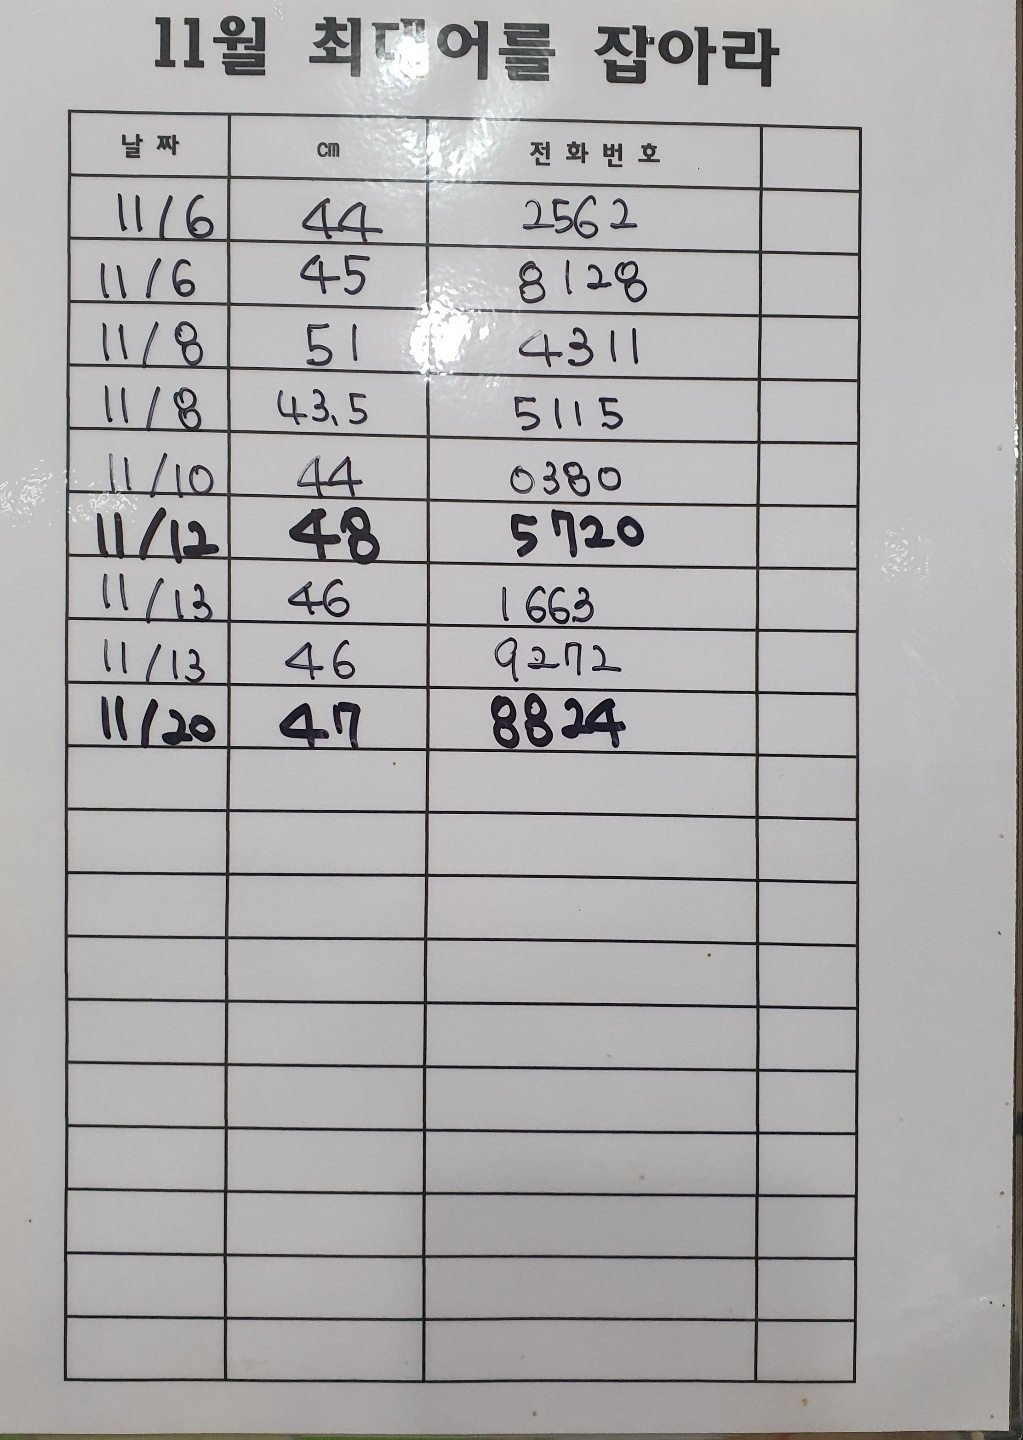 11월 최대어를 잡아라
날짜 cm 전화번호
11/6 44 2562
11/6 45 8128
11/8 51 4311
11/8 43.5 5115
11/10 44 0380
11/12 48 5720
11/13 46 1663
11/13 46 9272
11/20 47 8824